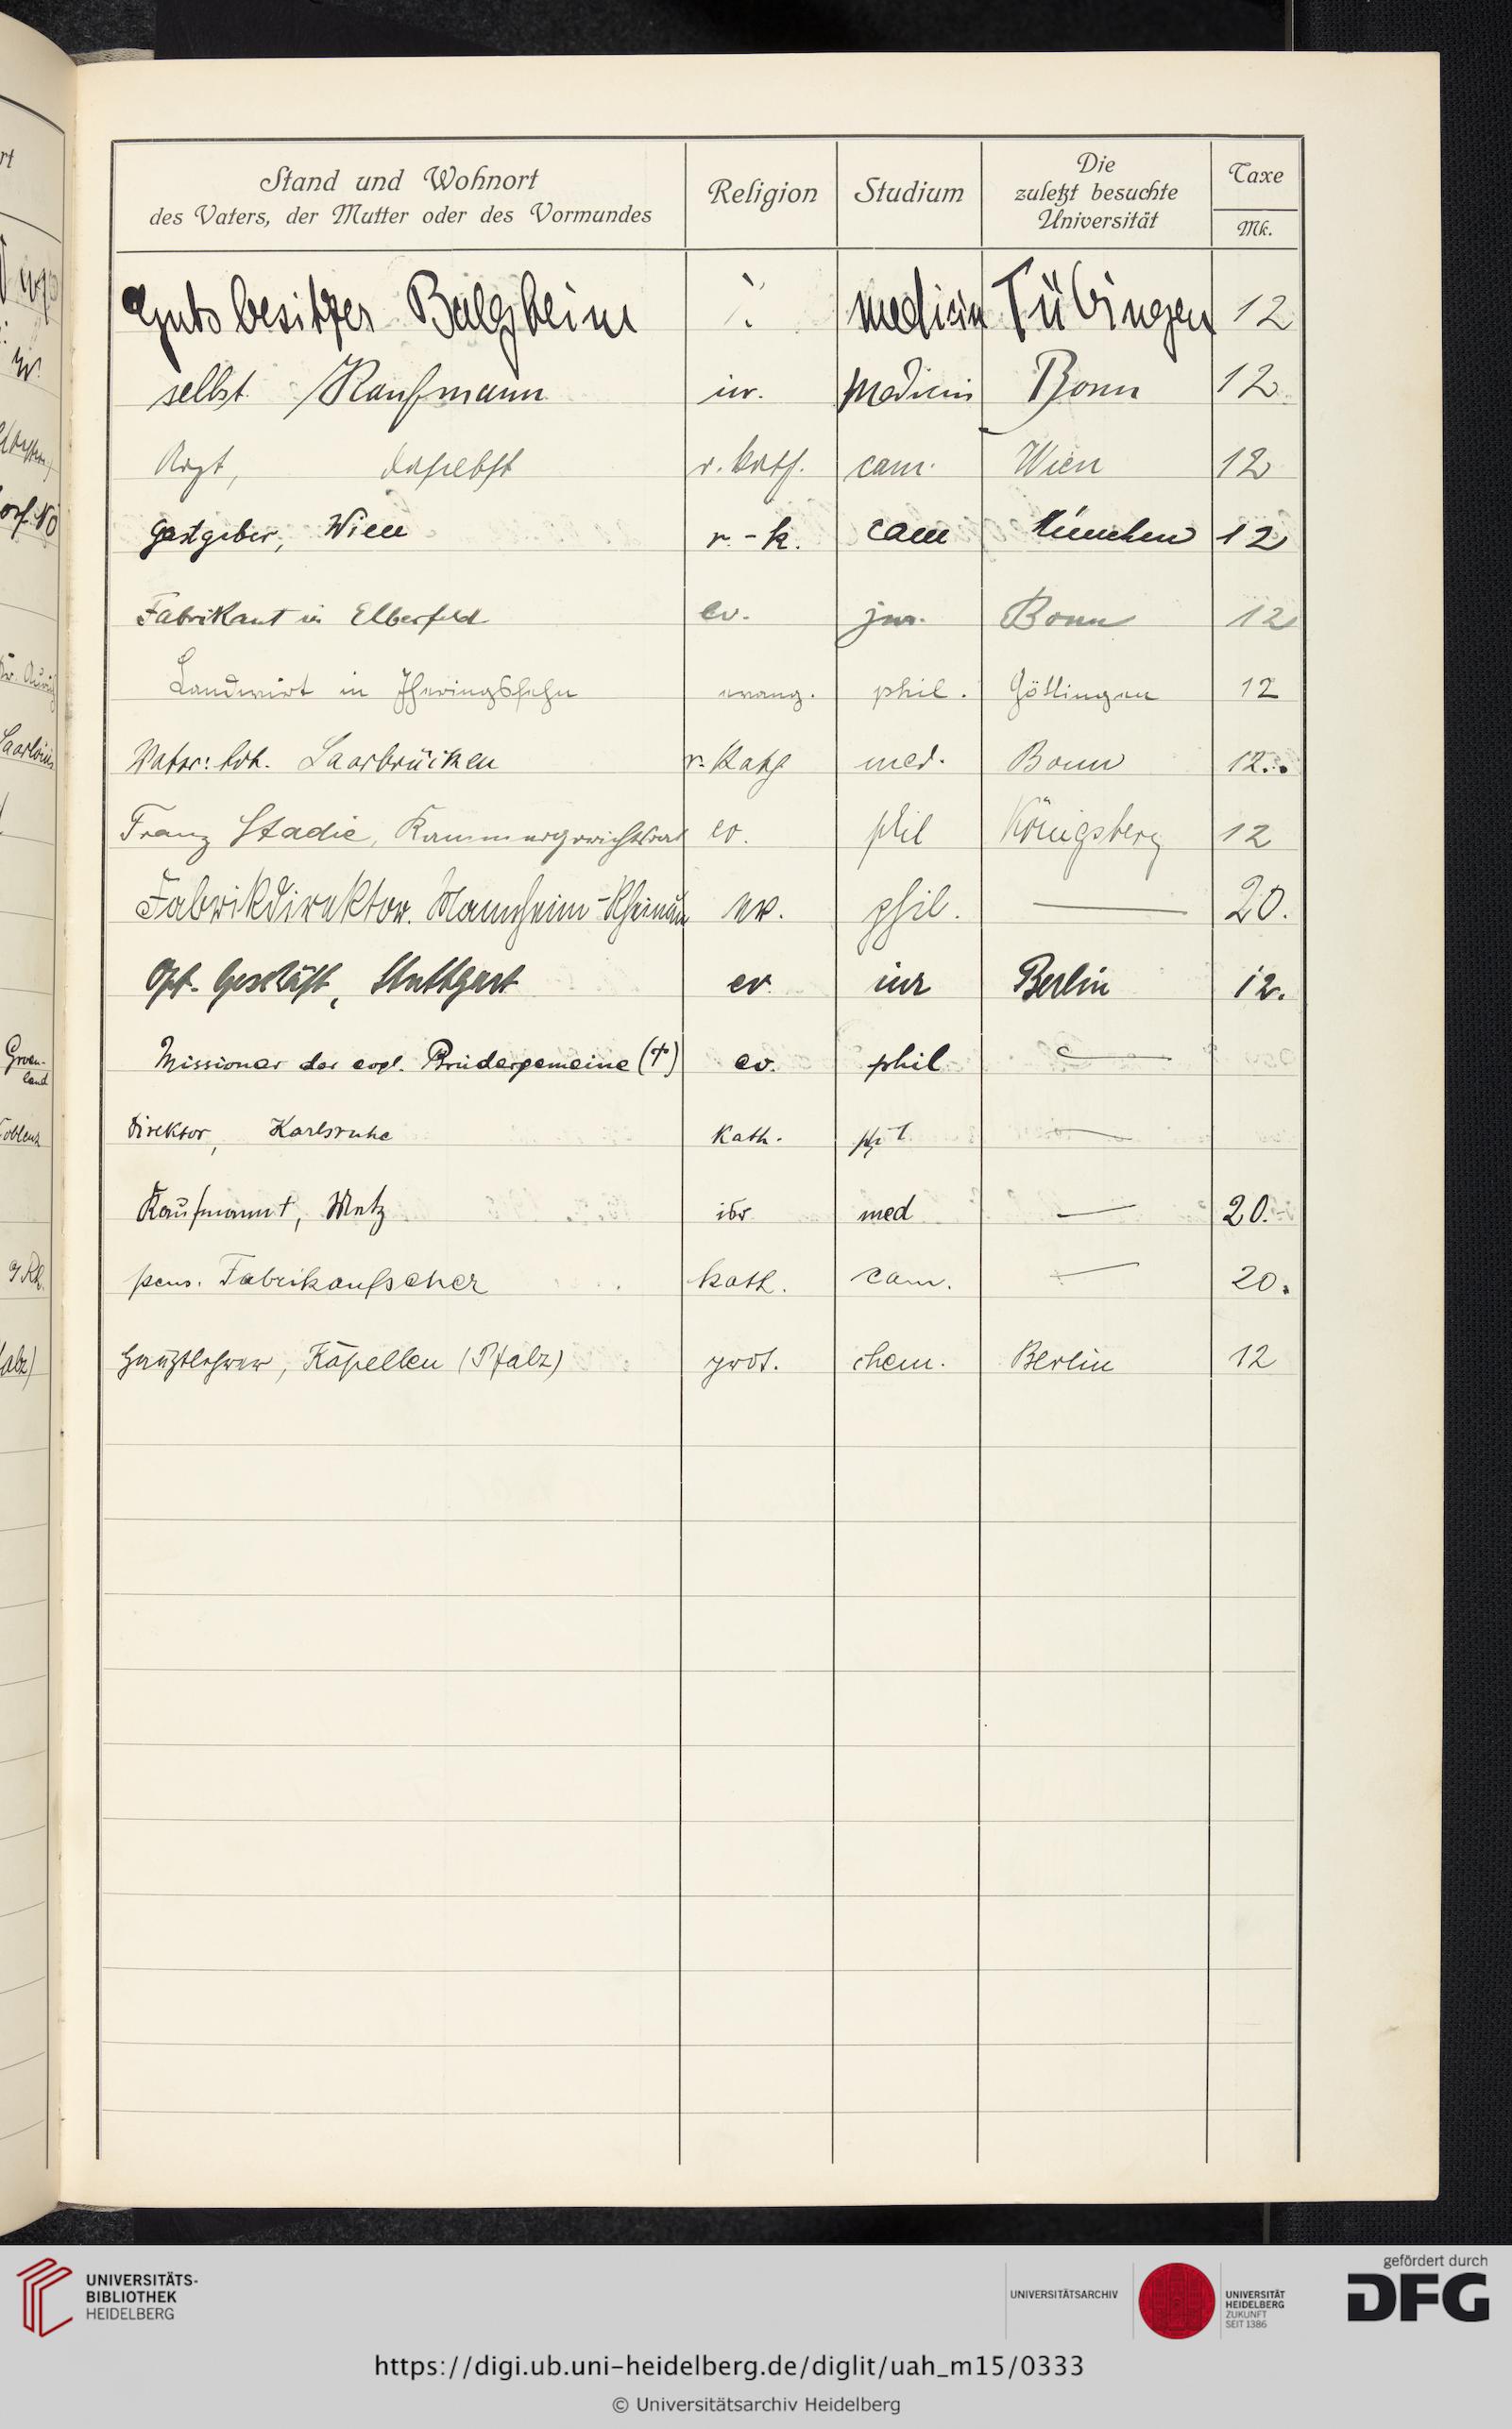 Stand und Wohnort
des Vaters, der Mutter oder des Vormundes
Religion
Studium
Die
zuletzt besuchte
Universität
Taxe
Mk.
Gutsbesitzer Balgheim ∴ medicin Tübingen 12
selbst Kaufmann isr. Medicin Bonn 12
Arzt, daselbst r. kath. cam. Wien 12
Gastgeber, Wien r.-k. cam München 12
Fabrikant in Elberfeld ev. jur. Bonn 12
Landwirt in Iheringsfehn evang. phil. Göttingen 12
Vater: tot. Saarbrücken r. Kath med. Bonn 12..
Franz Stadie, Kammergerichtsrat ev. phil Königsberg 12
Fabrikdirektor. Mannheim-Rheinau ev. phil. — 20.
Opt. Geschäft, Stuttgart ev. iur Berlin 12.
Missionar der evgl. Brüdergemeine (†) ev. phil —
Direktor, Karlsruhe Kath. phil —
Kaufmann†, Metz isr med — 20.-
pens. Fabrikaufseher kath. cam. — 20.
Hauptlehrer, Kapellen (Pfalz) prot. chem. Berlin 12
Groen-
land
Saarlouis
Coblenz
UNIVERSITÄTS-
BIBLIOTHEK
HEIDELBERG
UNIVERSITÄTSARCHIV
UNIVERSITÄT
HEIDELBERG
ZUKUNFT
SEIT 1386
gefördert durch
DFG
https://digi.ub.uni-heidelberg.de/diglit/uah_m15/0333
© Universitätsarchiv Heidelberg